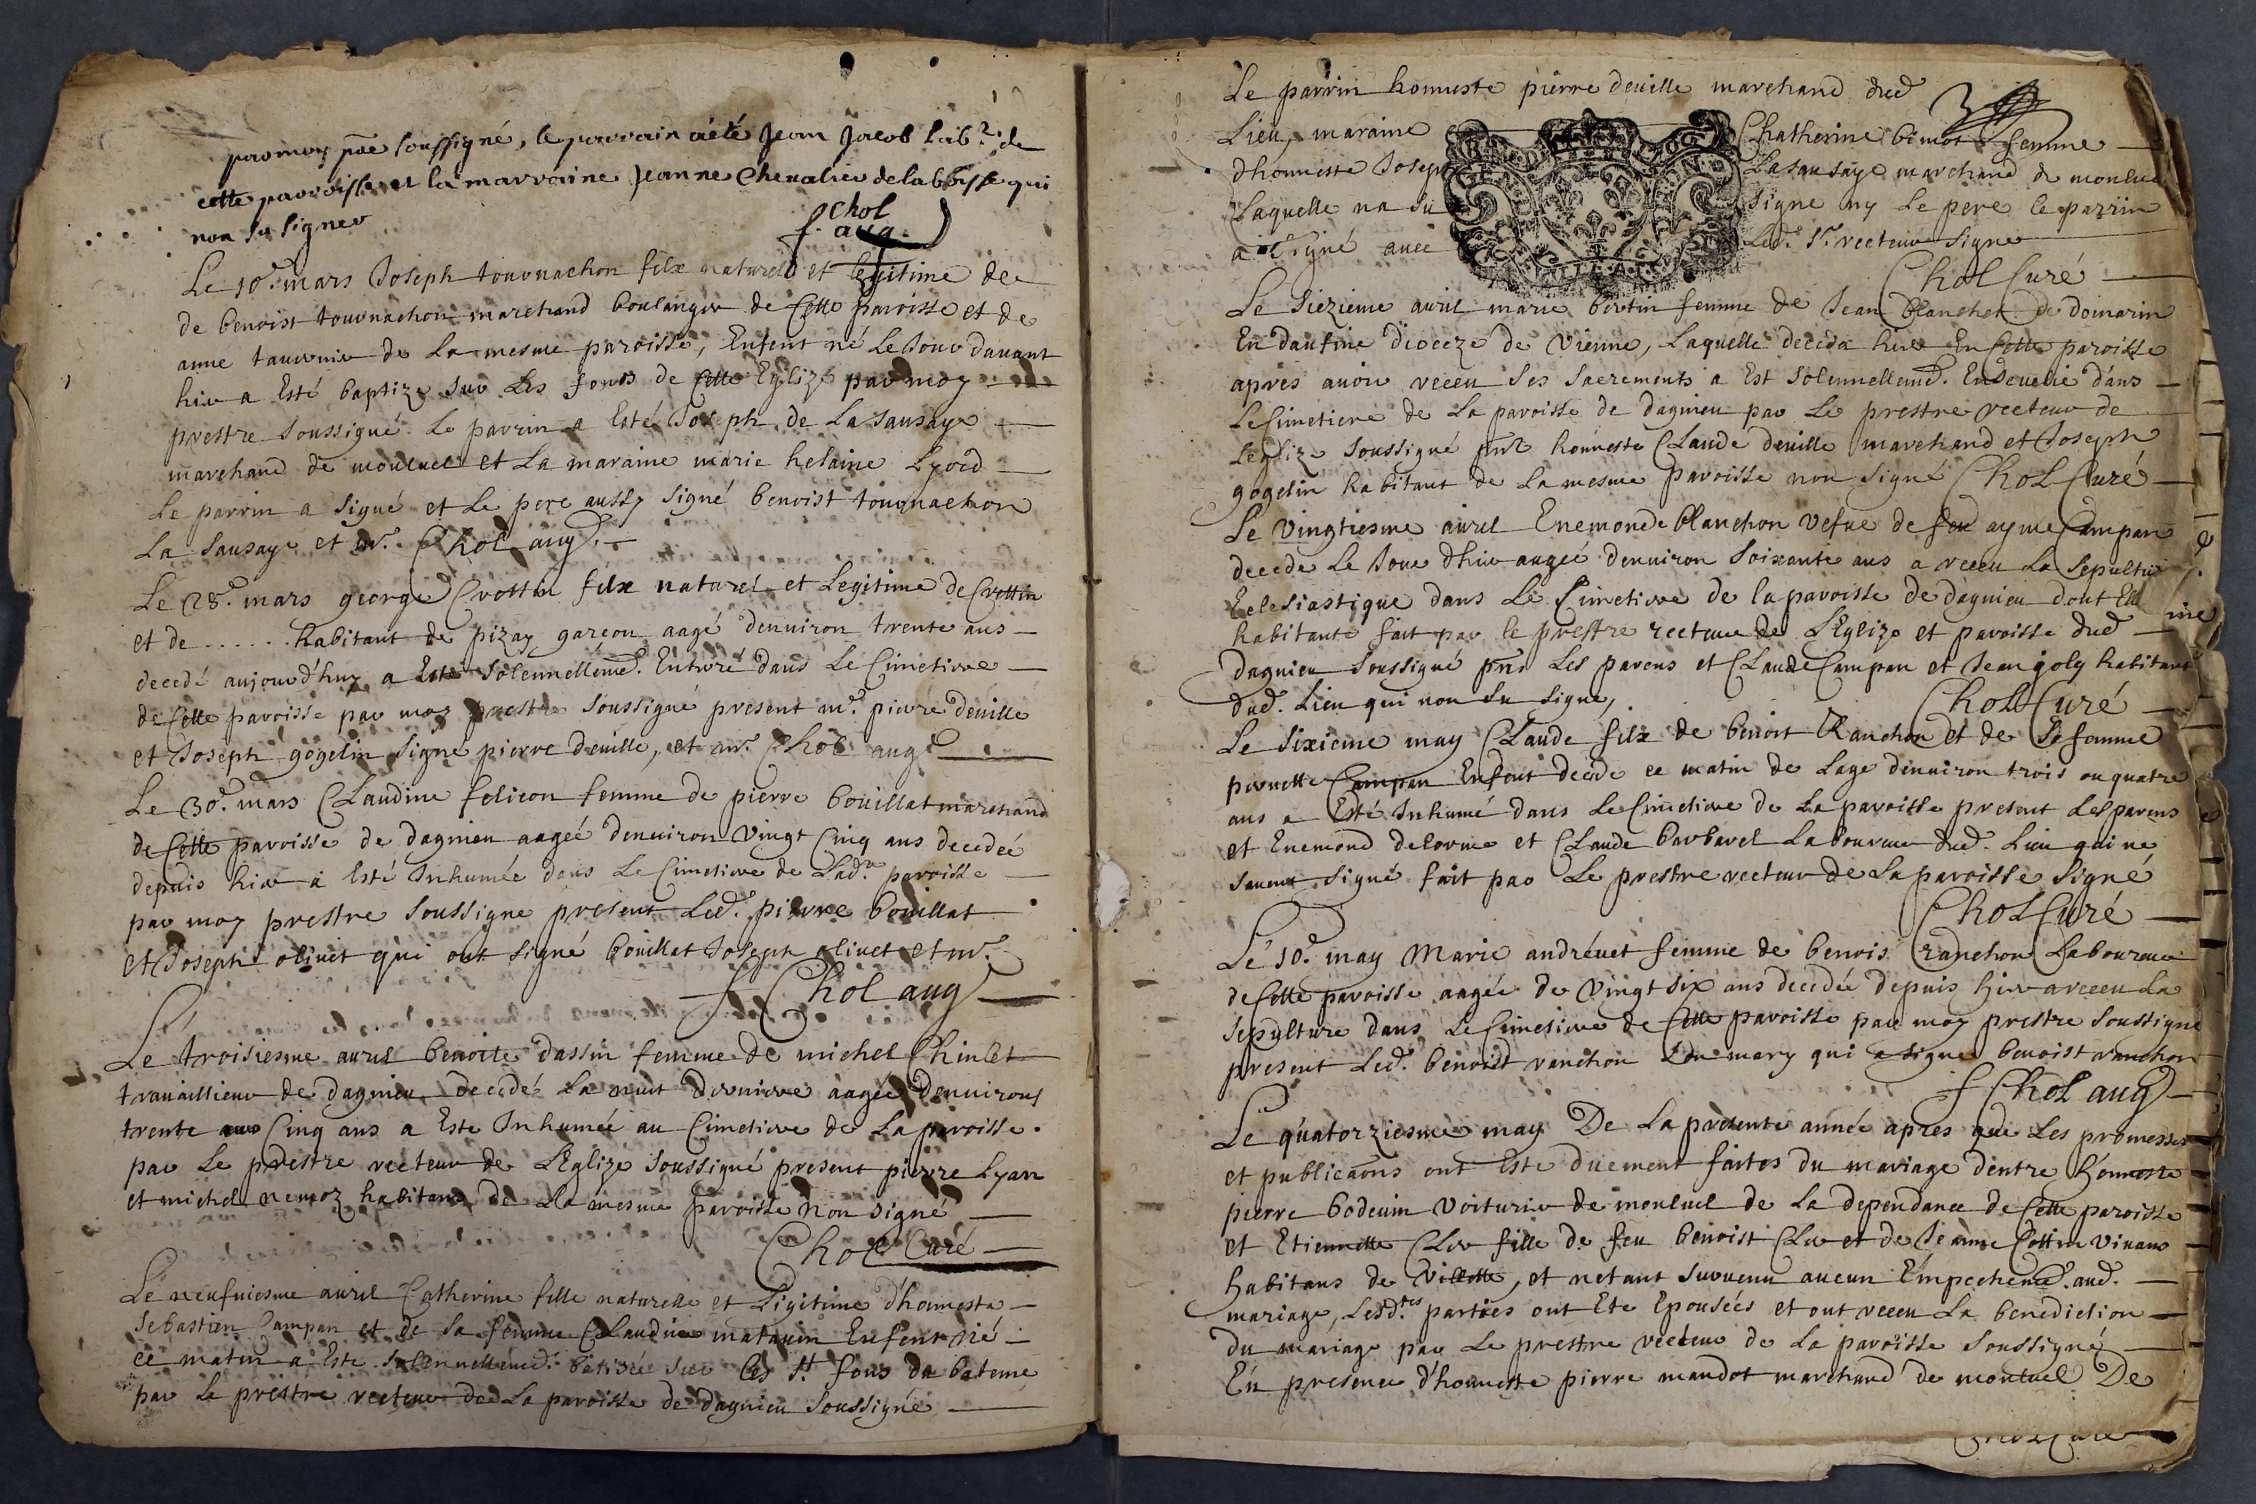 par moy pñe soussigné, le parrain a été Jean Jacob lab.r de
cette parroisse et la marraine Jeanne Chevalier de la boisse qui
non su signer
f. Chol
aug.
Le 10.e mars Joseph tournachon filx naturel et legitime de
de benoist tournachon marchand boulanger de Cette paroisse et de
anne tavernier de La mesme paroisse, Enfent né Le Jour davant
hier a Esté baptizé sur Les fonds de Cette Eglize par moy
prestre soussigné. Le parrin a Esté Joseph de La sausaye
marchand de monluel et La maraine marie helaine Lyord
Le parrin a signé et Le pere aussy signé benoist tournachon
La sausaye et m.r Chol aug.
Le 28.e mars george Crottin filx naturel et Legitime de Crottin
et de ...... habitant de pizay garcon aagé denuiron trente ans
decedé aujourd'huy a Esté solennellem.t Enterré dans Le Cimetiere
de Cette paroisse par moy prestre soussigné present m.r pierre deuille
et Joseph gogelin signé pierre deuille, et m.r Chol aug
Le 30.e mars Claudine felicon femme de pierre bouillat marchand
de Cette paroisse de dagnieu aageé denuiron Vingt Cinq ans decedeé
depuis hier a Esté Inhumée dans Le Cimetiere de Lad.e paroisse
par moy prestre soussigne present Led.t pierre bouillat
et Joseph oliuet qui ont signé bouillat Joseph oliuet et m.r
f Chol aug
Le troisiesme auril benoite dassin femme de michel Chinlet
trauaillieur de dagnieu decedeé La nuit derniere aageé denuirons
trente Cinq ans a Este Inhumée au Cimetiere de La paroisse.
par Le prestre recteur de L'Eglize soussigné present pierre Lyan
et michel nemoz habitans de La mesme paroisse Non signé
Chol Curé
Le neufuiesme auril Catherine fille naturelle et Ligitime d'homeste
Sebastien Campan et de sa femme Claudine matauin Enfent né
ce matin a Este solennellem.t batisée sur les St. fons de bateme
par Le prestre recteur de La paroisse de dagnieu soussigné
Le parrin honneste pierre deuille marchand dud
Lieu, maraine Chatherine bimot femme
dhonneste Joseph Lasausaye marchand de monluel
Laquelle na su signe ny Le pere le parrin
a signé auec Led. Sr. recteur signe
Chol Curé
Le siezieme auril marie bertin femme de Jean blanchet de domarin
En daufine dioceze de Vienne, Laquelle deceda hier En Cette paroisse
apres auoir receu ses sacrements a Est solennellem.t Enseuelie dans
Le Cimetiere de La paroisse de dagnieu par Le prestre recteur de
Leglize soussigné pnt honneste Claude deuille marchand et Joseph
gogelin habitant de La mesme paroisse non signé Chol Curé
Le Vingtiesme auril Enemonde blanchon vefue de feu ayme Campan
decede Le Jour dhier aageé denuiron soixante ans a receu La sepultur
Eclesiastique dans Le Cimetiere de la paroisse de dagnieu dont Elle
habitante fait par le prestre recteur de L'Eglize et paroisse dud
dagnieu soussigné pnt Les parens et Claude Campan et Jean joly habitans
dud. Lieu qui non su signe,
Chol Curé
Le sixieme may Claude filx de benoit Ranchon et de sa femme
pernette Campan Enfent decede ce matin de Lage denuiron trois ou quatre
ans a Esté Inhumé dans Le Cimetiere de La paroisse present Les parens
et Enemond delorme et Claude barbaret Laboureur dud. Lieu qui ne
sauent signé fait par Le prestre recteur de La paroisse signé
Chol Curé
Le 10.e may Marie andréuet femme de benois ranchon Laboureur
de Cette paroisse aageé de Vingt six ans decedée depuis hier a receu La
sepulture dans Le Cimetiere de Cette paroisse par moy prestre soussigne
present Led. benoist ranchon son mary qui a signe benoist ranchon
f Chol aug
Le quatorziesme may De La presente année apres que Les promesses
et publicaõns ont Este duement faites du mariage dentre honneste
pierre bodeuin Voiturier de monluel de La dependance de Cette paroisse
et Etiennette Cler fille de feu benoist Cler et de Jeanne Cottin Viuans
habitans de Villette, et netant suruenu aucun Empechem.t aud.
mariage, Lesd.tes parties ont Ete Epousées et ont receu La benediction
du mariage par Le prestre recteur de La paroisse soussigné
En presence d'honneste pierre mandot marchand de monluel De